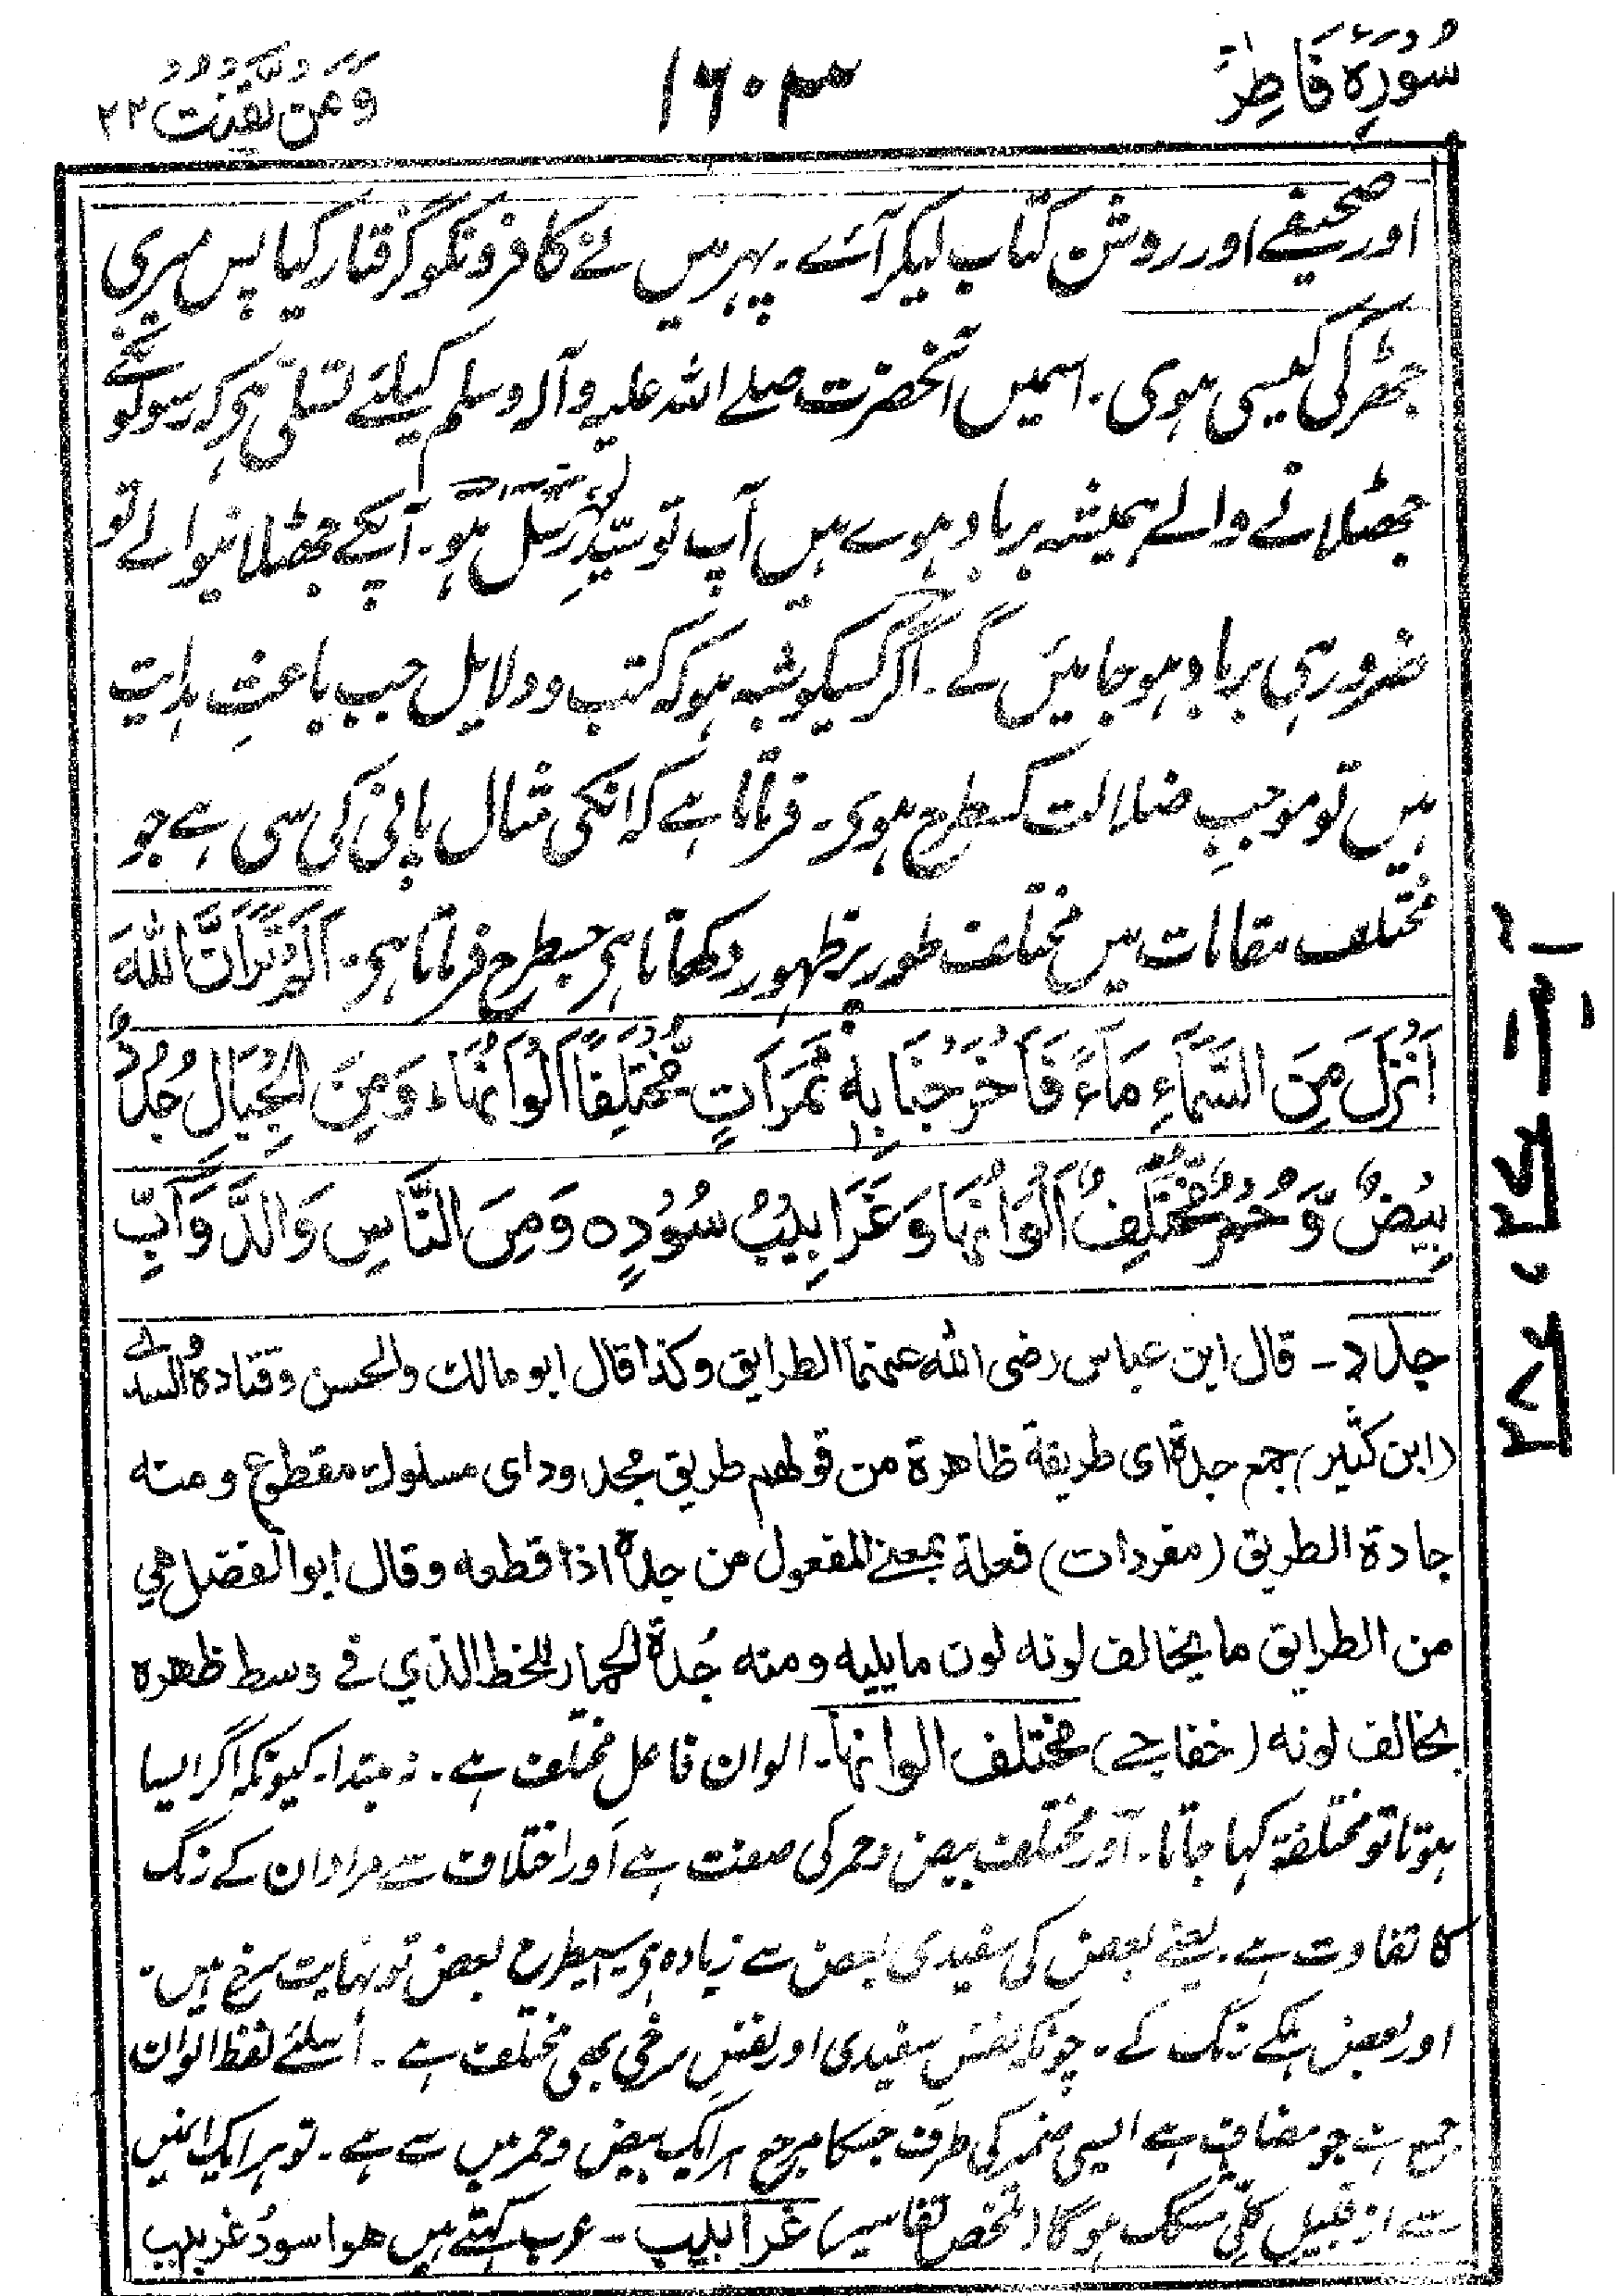 سُورَۃُ فَاطِرٍ
۱۶۰۳
وَمَنْ یَّقْنُتْ ۲۲
اور صحیفے اور روشن کتاب لیکر آئے۔ پہر میں نے کافرونکو گرفتار کیا پس میری
جھڑکی کیسی ہوی۔ اسمیں آنحضرت صلے اللہ علیہ وآلہ وسلم کیلئے تسلّی ہی کہ رسولونکے
جھٹلانے والے ہمیشہ برباد ہوے ہیں آپ تو سیّدِ رسل ہو۔ آپکے جھٹلانیوالے تو
ضرورہی برباد ہوجائیں گے۔ اگر کسیکو شبہ ہو کہ کتب و دلایل جب باعثِ ہدایت
ہیں تو موجبِ ضلالت کسطرح ہوی۔ فرماتا ہے کہ انکی مثال پانی کی سی ہے جو
مختلف مقامات میں مختلف طور پر ظہور دکھاتا ہی جسطرح فرماتا ہی۔ اَلَمْ تَرَ اَنَّ اللّٰهَ
اَنْزَلَ مِنَ السَّمَآءِ مَآءً فَاَخْرَجْنَا بِهٖ ثَمَرَاتٍ مُّخْتَلِفًا اَلْوَانُهَا، وَمِنَ الْجِبَالِ جُدَدٌ
بِیْضٌ وَّحُمْرٌ مُّخْتَلِفٌ اَلْوَانُهَا وَغَرَابِیْبُ سُوْدٌ ہ وَمِنَ النَّاسِ وَالدَّوَآبِّ
جدد۔ قال ابن عباس رضی اللہ عنہما الطرایق وکذا قال ابو مالک والحسن وقتادۃ والسدی
(ابن کثیر) جمع جدۃ ای طریقة ظاهرة من قولهم طریق مجدود ای مسلوک مقطوع ومنه
جادة الطریق (مفردات) فعلة بمعنے المفعول من جدہ اذا قطعه وقال ابو الفضل هی
من الطرایق ما یخالف لونه لون ما یلیه ومنه جُدۃ الحمار للخط الذی فی وسط ظهره
یخالف لونه (خفاجے) مختلف الوانها۔ الوان فاعل مختلف ہے۔ نہ مبتدا۔ کیونکہ اگر ایسا
ہوتا تو مختلفة کہا جاتا۔ اور مختلف بیض وحمر کی صفت ہے اور اختلاف سے مراد ان کے رنگ
کا تفاوت ہے۔ یعنے بعض کی سفیدی بعض سے زیادہ ہی۔ اسیطرح بعض تو نہایت سرخ ہیں۔
اور بعض ہلکے رنگ کے۔ چونکہ نفس سفیدی اور نفسِ سرخی بھی مختلف ہے۔ اسلئے لفظ الوان
جمع ہے جو مضاف ہے ایسی ضمیر کی طرف جسکا مرجع ہر ایک بیض وحمر میں سے ہے۔ تو ہر ایک انمیں
سے از قبیل کلّی مشکک ہوگا (ملخص تفاسیر) غرابیب۔ عرب کہتے ہیں هو اسودُ غربیب